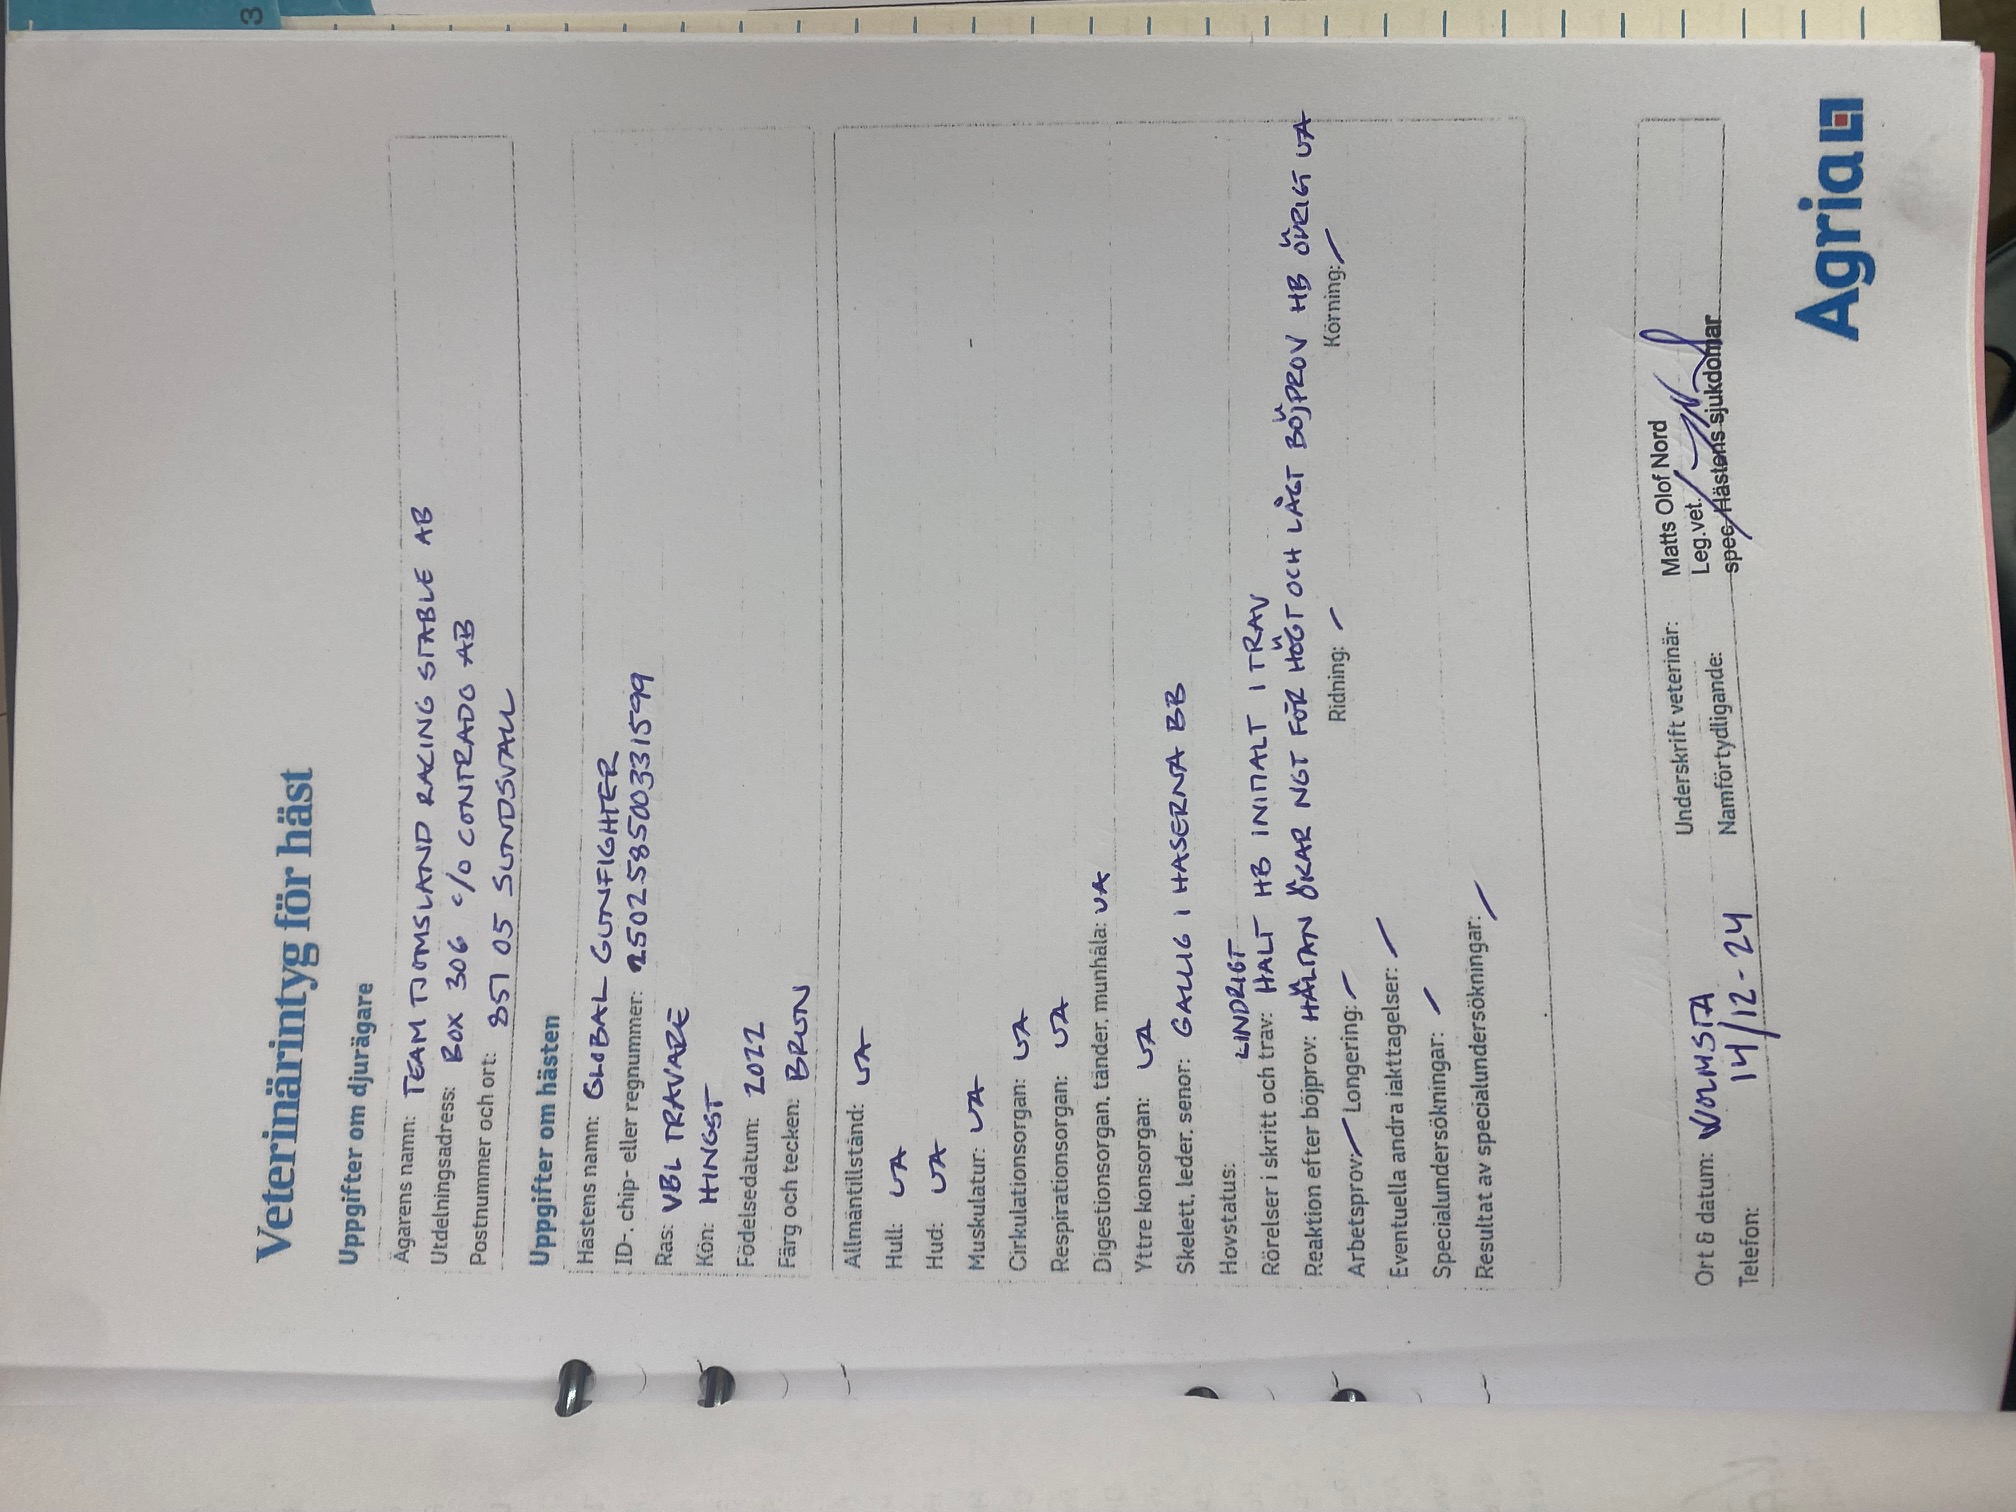 3
Veterinärintyg för häst
Uppgifter om djurägare
Ägarens namn: TEAM TJOMSLAND RACING STABLE AB
Utdelningsadress: BOX 306 c/o CONTRADO AB
Postnummer och ort: 851 05 SUNDSVALL
Uppgifter om hästen
Hästens namn: GLOBAL GUNFIGHTER
ID-, chip- eller regnummer: 250258500331599
Ras: VBL TRAVARE
Kön: HINGST
Födelsedatum: 2022
Färg och tecken: BRUN
Allmäntillstånd: UA
Hull: UA
Hud: UA
Muskulatur: UA
Cirkulationsorgan: UA
Respirationsorgan: UA
Digestionsorgan, tänder, munhåla: UA
Yttre könsorgan: UA
Skelett, leder, senor: GALLIG I HASERNA BB
Hovstatus:
LINDRIGT
Rörelser i skritt och trav: HALT HB INITIALT I TRAV
Reaktion efter böjprov: HÄLTAN ÖKAR NGT FÖR HÖGT OCH LÅGT BÖJPROV HB ÖVRIGT UA
Arbetsprov: / Longering: / Ridning: / Körning: /
Eventuella andra iakttagelser: /
Specialundersökningar: /
Resultat av specialundersökningar: /
Ort & datum: WOLMSTA Underskrift veterinär: Matts Olof Nord
14/12-24 Leg.vet.
Telefon: Namförtydligande: spec. Hästens sjukdomar
Agria